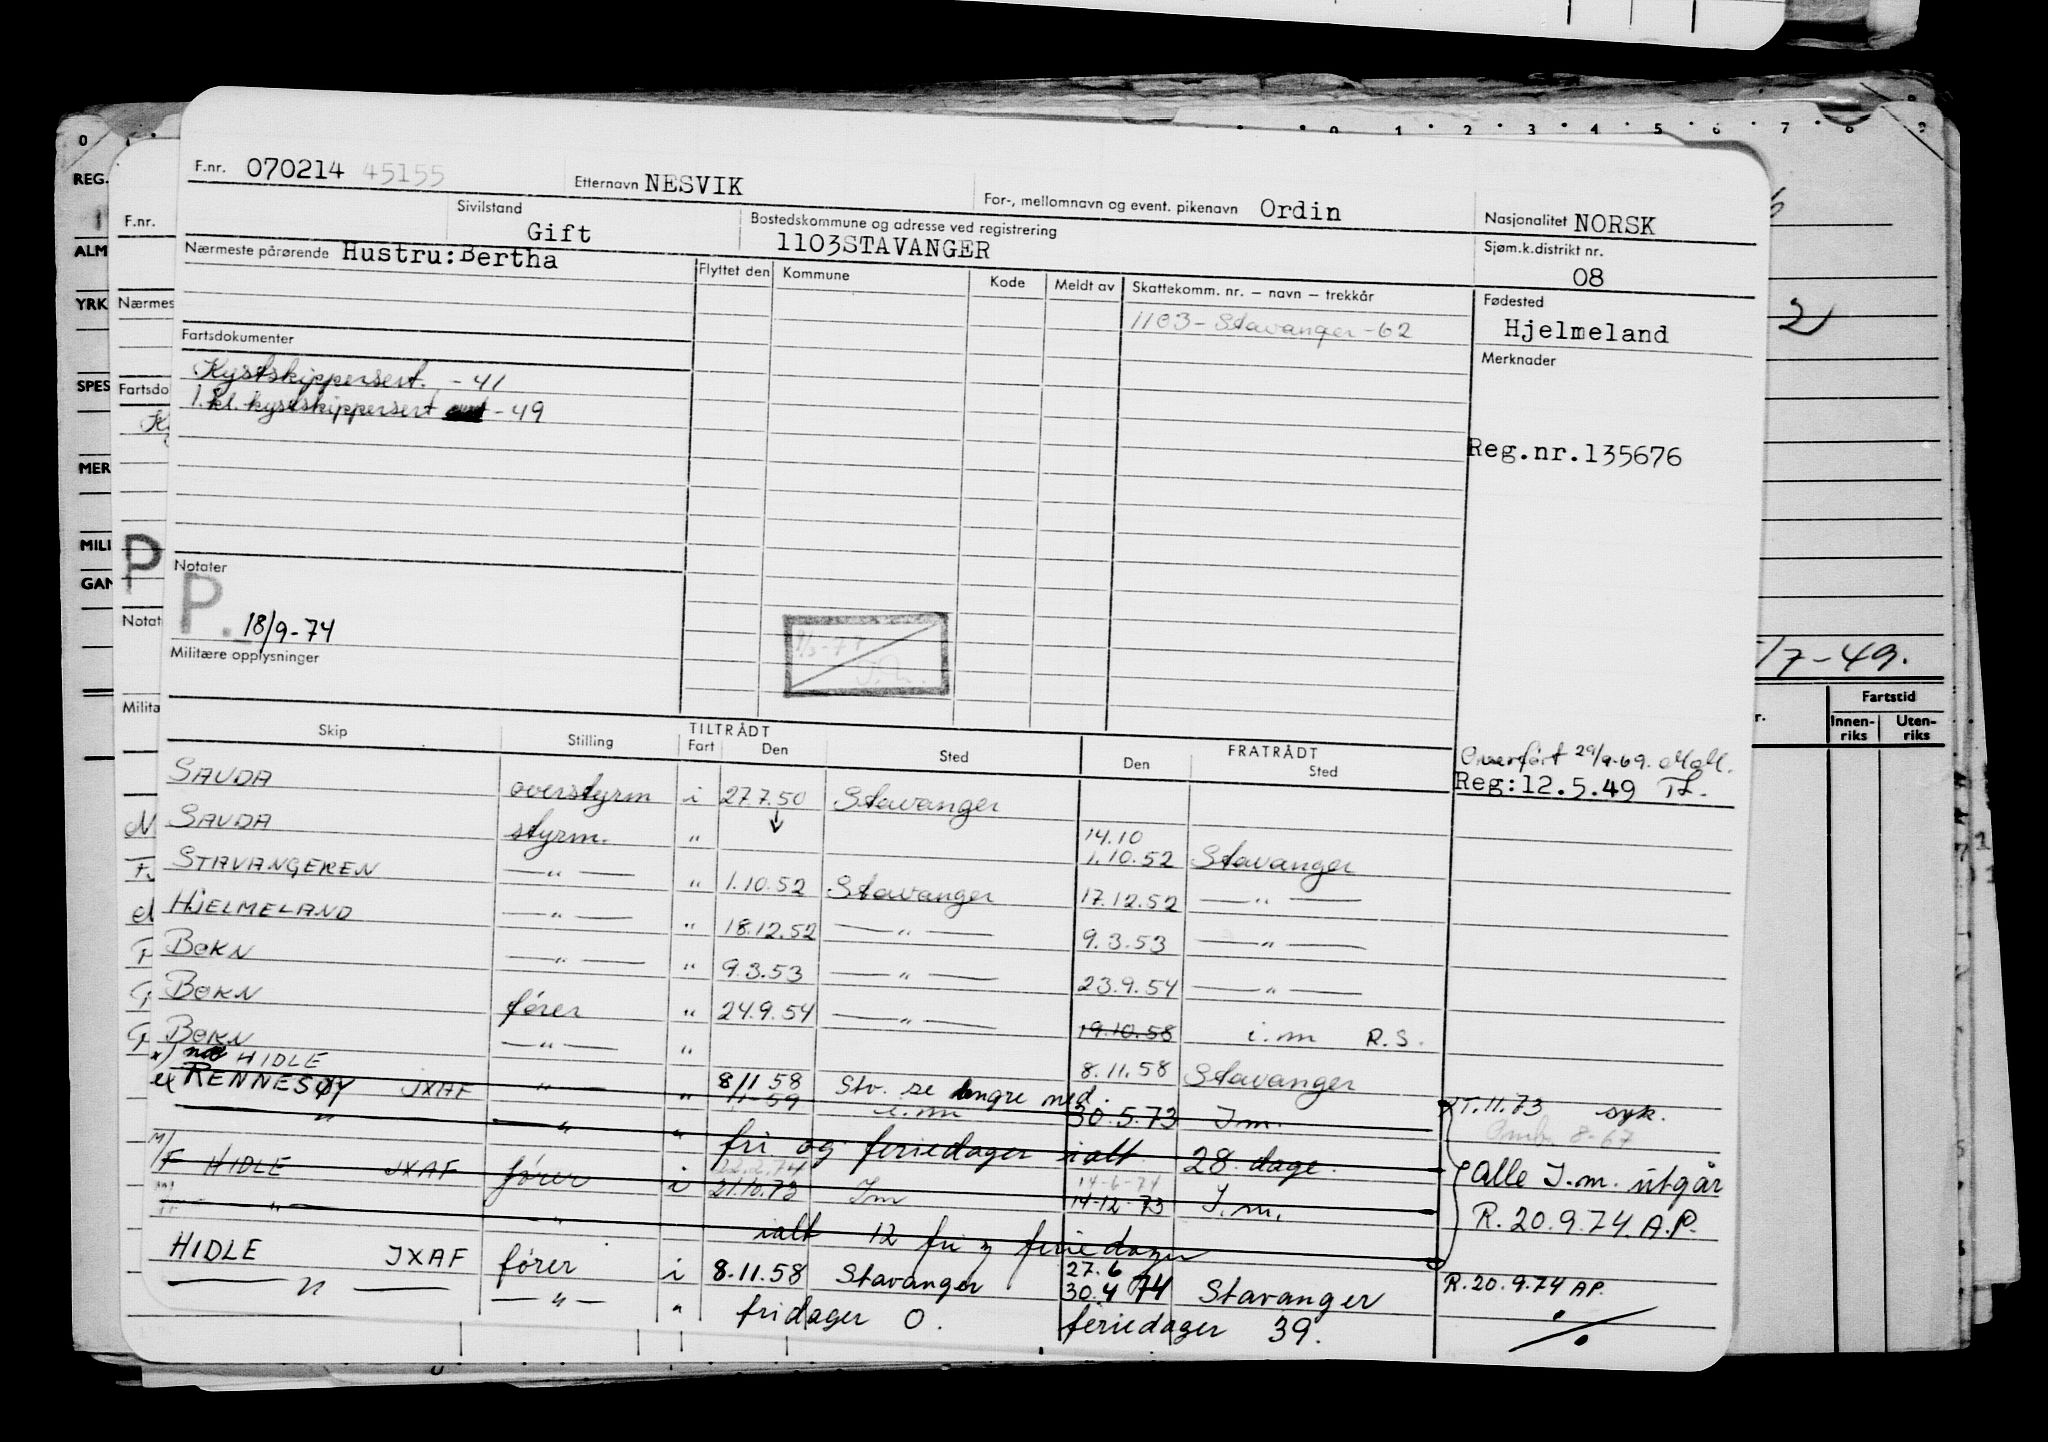 F.nr. 070214 45155 Etternavn NESVIK For-, mellomnavn og event. pikenavn Ordin Nasjonalitet NORSK
Sivilstand Gift Bostedskommune og adresse ved registrering 1103STAVANGER Sjøm.k.distrikt nr. 08
Nærmeste pårørende Hustru:Bertha Flyttet den Kommune Kode Meldt av Skattekomm. nr. – navn – trekkår Fødested
1103-Stavanger-62 Hjelmeland
Fartsdokumenter Merknader
Kystskippersert. -41
1. kl. kystskippersert -49
Reg.nr.135676
Notater
P. 18/9-74
Militære opplysninger
Overført 29/9-69.
Reg:12.5.49
Skip Stilling TILTRÅDT FRATRÅDT
Fart Den Sted Den Sted
SAUDA overstyrm i 27.7.50 Stavanger
SAUDA styrm. " 14.10
1.10.52 Stavanger
STAVANGEREN — " — " 1.10.52 Stavanger 17.12.52 — " —
HJELMELAND — " — " 18.12.52 — " — 9.3.53 — " —
BOKN — " — " 9.3.53 — " — 23.9.54 — " —
BOKN fører " 24.9.54 — " — 19.10.58 i.m R.S.
BOKN — " — " 8.11.58 Stavanger
HIDLE
ex RENNESØY JXAF — " — " 8/11 58 Stv. se lengre ned.
1-59 i.m 30.5.73 I.m. T.11.73 syk.
" " " fri og feriedager ialt 28 dage.
M/F HIDLE JXAF fører i 22.2.74 14-6-74 Alle I.m. utgår
21.10.73 Im 14-12-73 I.m. R. 20.9.74. A.P.
" " ialt 12 fri og feriedager
HIDLE JXAF fører i 8.11.58 Stavanger 27.6
30.4 74 Stavanger R.20.9.74 AP.
— " — — " — " fridager 0. feriedager 39.
0 0 1 2 3 4 5 6 7 8 9
REG.
F.nr.
ALM
YRK Nærmes
SPES Fartsdo
MER
MILI P
GAN
Notat
Milita
2
/7-49.
Fartstid
Innen-riks Uten-riks